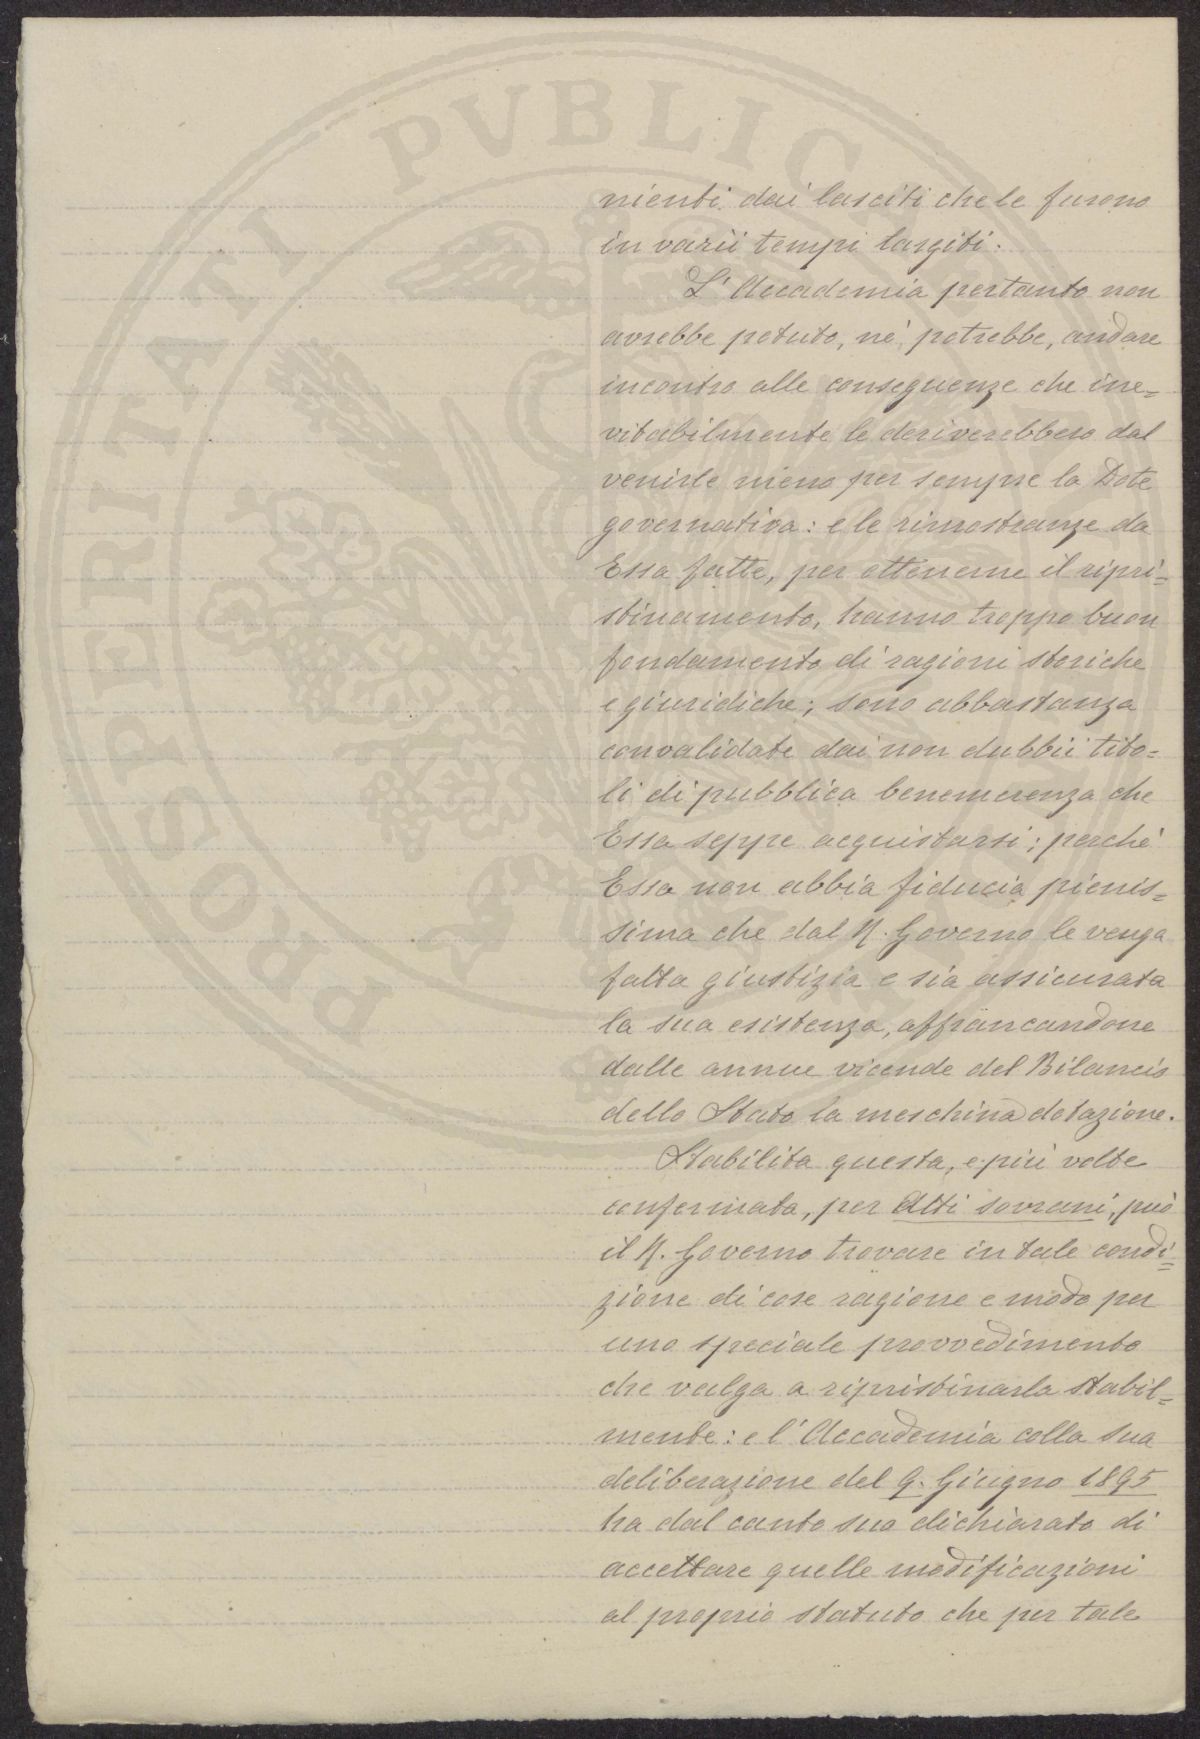 PROSPERITATI PVBLIC
nienti dai lasciti che le furono
in varii tempi largiti.
L'Accademia pertanto non
avrebbe potuto, nè potrebbe, andare
incontro alle conseguenze che ine=
vitabilmente le deriverebbero dal
venirle meno per sempre la Dote
governativa: e le rimostranze da
Essa fatte, per ottenerne il ripri=
stinamento, hanno troppo buon
fondamento di ragioni storiche
e giuridiche; sono abbastanza
convalidate dai non dubbii tito=
li di pubblica benemerenza che
Essa seppe acquistarsi; perchè
Essa non abbia fiducia pienis=
sima che dal R. Governo le venga
fatta giustizia e sia assicurata
la sua esistenza, affrancandone
dalle annue vicende del Bilancio
dello Stato la meschina dotazione.
Stabilita questa, e più volte
confermata, per Atti sovrani, può
il R. Governo trovare in tale condi=
zione di cose ragione e modo per
uno speciale provvedimento
che valga a ripristinarla stabil=
mente: e l'Accademia colla sua
deliberazione del 9. Giugno 1895
ha dal canto suo dichiarato di
accettare quelle modificazioni
al proprio statuto che per tale